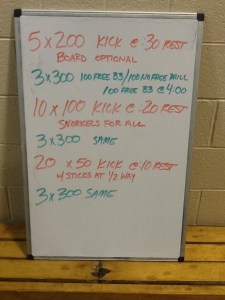 5 x 200 KICK @ :30 REST
BOARD OPTIONAL
3 x 300 100 FREE B3/100 NO FREE DRILL
100 FREE B3 @ 4:00
10 x 100 KICK @ :20 REST
SNORKELS FOR ALL
3 x 300 SAME
20 x 50 KICK @ :10 REST
W/ STICKS AT 1/2 WAY
3 x 300 SAME